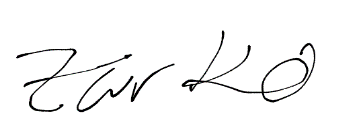 Zur KO